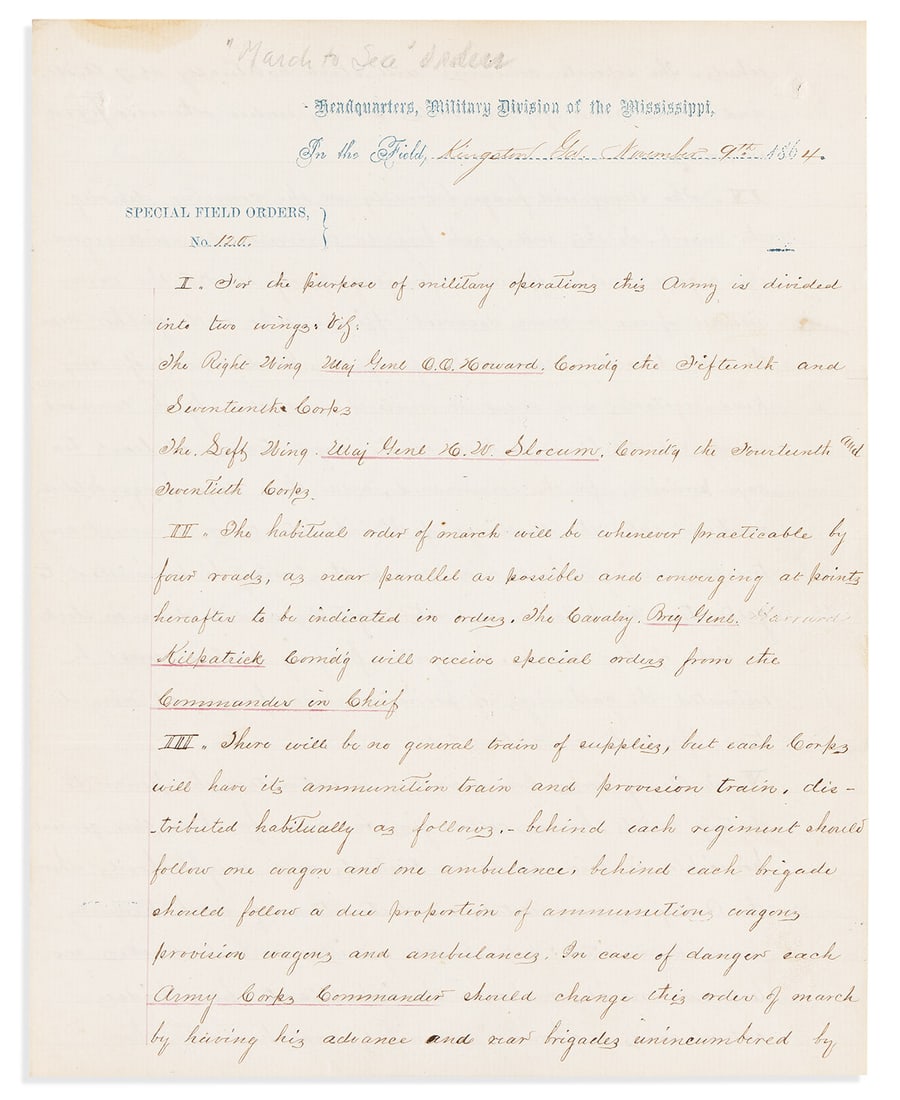 "March to Sea" Orders
Headquarters, Military Division of the Mississippi,
In the Field, Kingston Ga. November 9th 1864.
SPECIAL FIELD ORDERS, }
No. 120.
I. For the purpose of military operations this Army is divided
into two wings: Viz:
The Right Wing Maj Genl O.O. Howard. Comd'g the Fifteenth and
Seventeenth Corps
The Left Wing. Maj Genl H. W. Slocum. Comd'g the Fourteenth and
Twentieth Corps.
II. The habitual order of march will be whenever practicable by
four roads, as near parallel as possible and converging at points
hereafter to be indicated in orders. The Cavalry. Brig Genl.
Kilpatrick Comd'g will receive special orders from the
Commander in Chief
III. There will be no general train of supplies, but each Corps
will have its ammunition train and provision train, dis-
-tributed habitually as follows.- behind each regiment should
follow one wagon and one ambulance, behind each brigade
should follow a due proportion of ammunition, wagons
provision wagons and ambulances. In case of danger each
Army Corps Commander should change this order of march
by having his advance and rear brigades unincumbered by